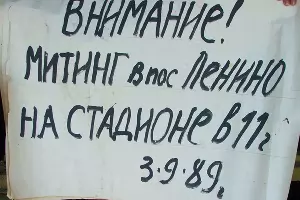 ВНИМАНИЕ!
МИТИНГ в пос ЛЕНИНО
НА СТАДИОНЕ в 11г
3.9.89г